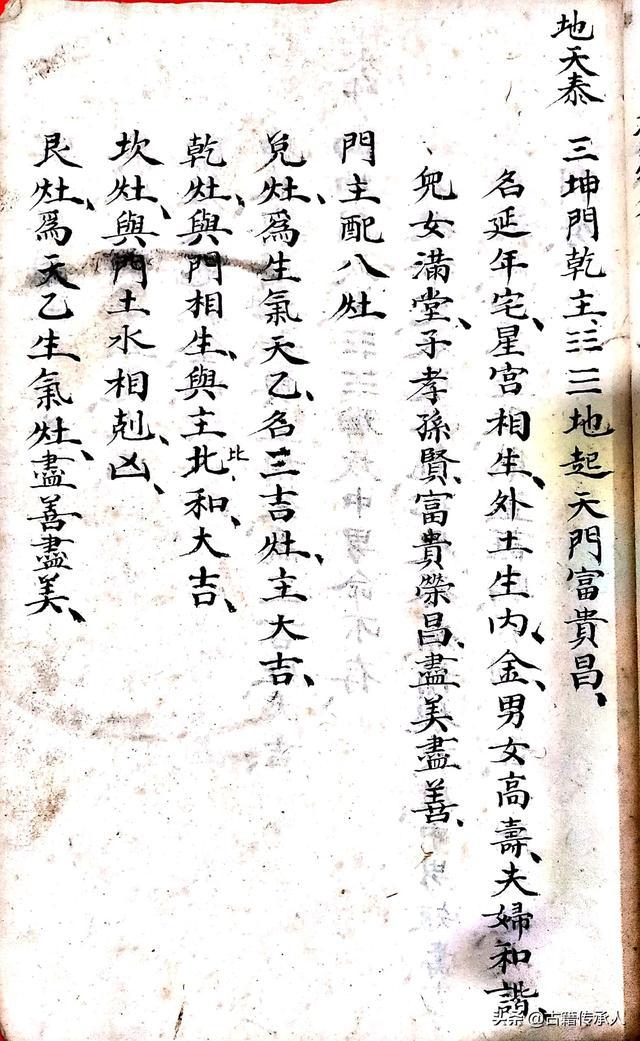 地天泰
三坤門乾主、☷☰地起天門富貴昌、
名延年宅、星宮相生、外土生内、金、男女高壽、夫婦和諧、
兒女滿堂、子孝孫賢、富貴榮昌、盡美盡善、
門主配八灶
兌灶、爲生氣天乙、名三吉灶、主大吉、
乾灶、與門相生、與主北比和、大吉、
坎灶、與門土水相剋、凶、
艮灶、爲天乙生氣灶、盡善盡美、
头条@古籍传承人